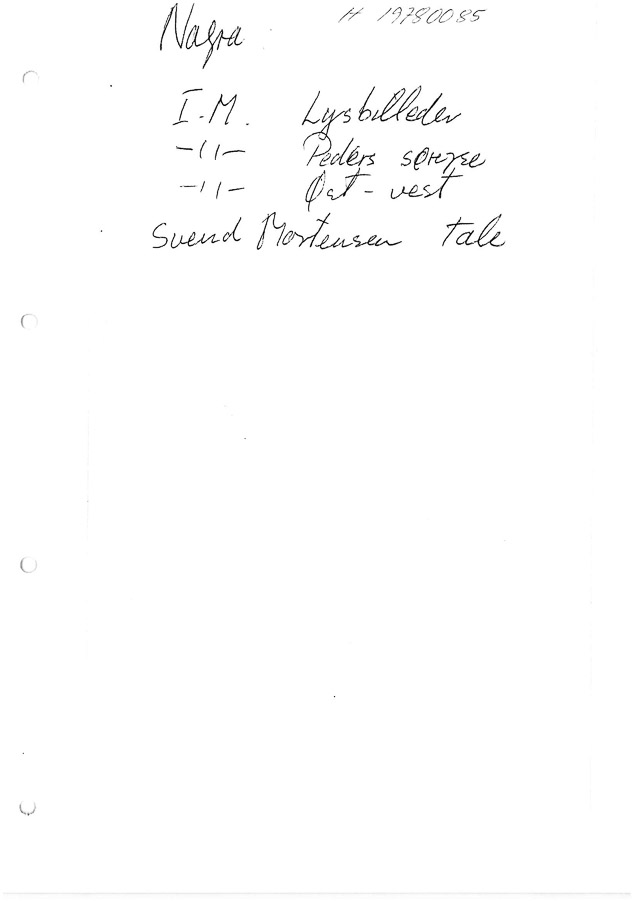 Nagra H 19780085
I.M. Lysbilleder
-〃- Peders
-〃- Øst-vest
Svend Mortensen tale